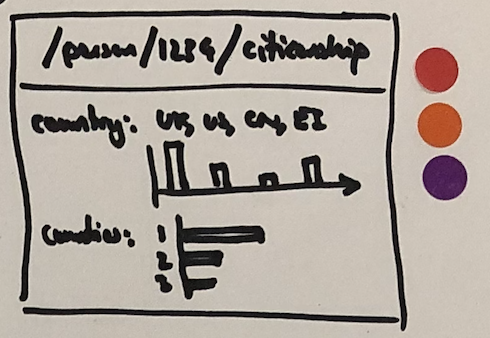 /person/1234/citizenship
country: UK, US, CA, EI
countries:
1
2
3